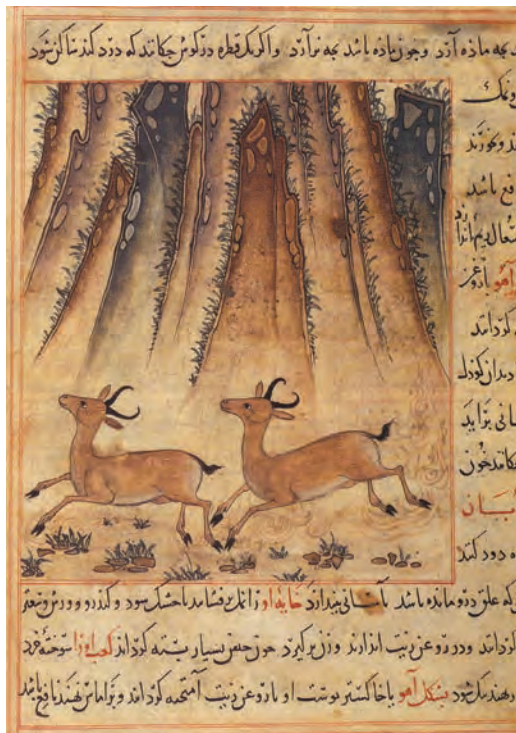 بچه ماده آرد وجون باده باشد بچه نرآرد واکر یک قطره درکوش جکانند که درد کند ساکن شود
ونمک
ند وبخورند
فع باشد
تعالی
آهو باروغن
کردانند
دندان کودک
سانی برآید
جکانند خون
ه دود کنند
که علق درو مانده باشد بآسانی بیندازد خایه او را نمک فشانند تا خشک شود وکندر و وسعتر
کردانند ودر روغن زیت اندازند وزن برکیرد خون حیض بسیار بسته کرداند کعب او را سوخته خرد
دهند نیک شود پشکل آهو باخاکستر پوست او باروغن زیت آمیخته کردانند وبراماس نهند نافع باشد